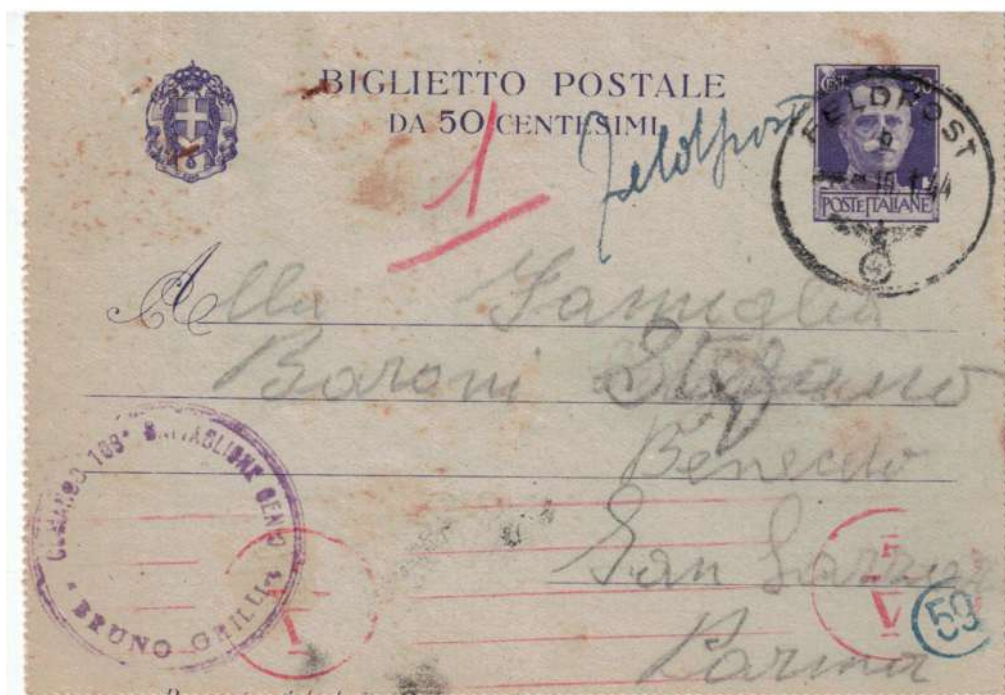 BIGLIETTO POSTALE
DA 50 CENTESIMI
1
Feldpost
FELDPOST
b
15.1.44
POSTE ITALIANE
Alla Famiglia
Baroni Stefano
Beneceto
San Lazzaro
Parma
COMANDO 103° BATTAGLIONE GENIO
"BRUNO GRILLI"
V
59